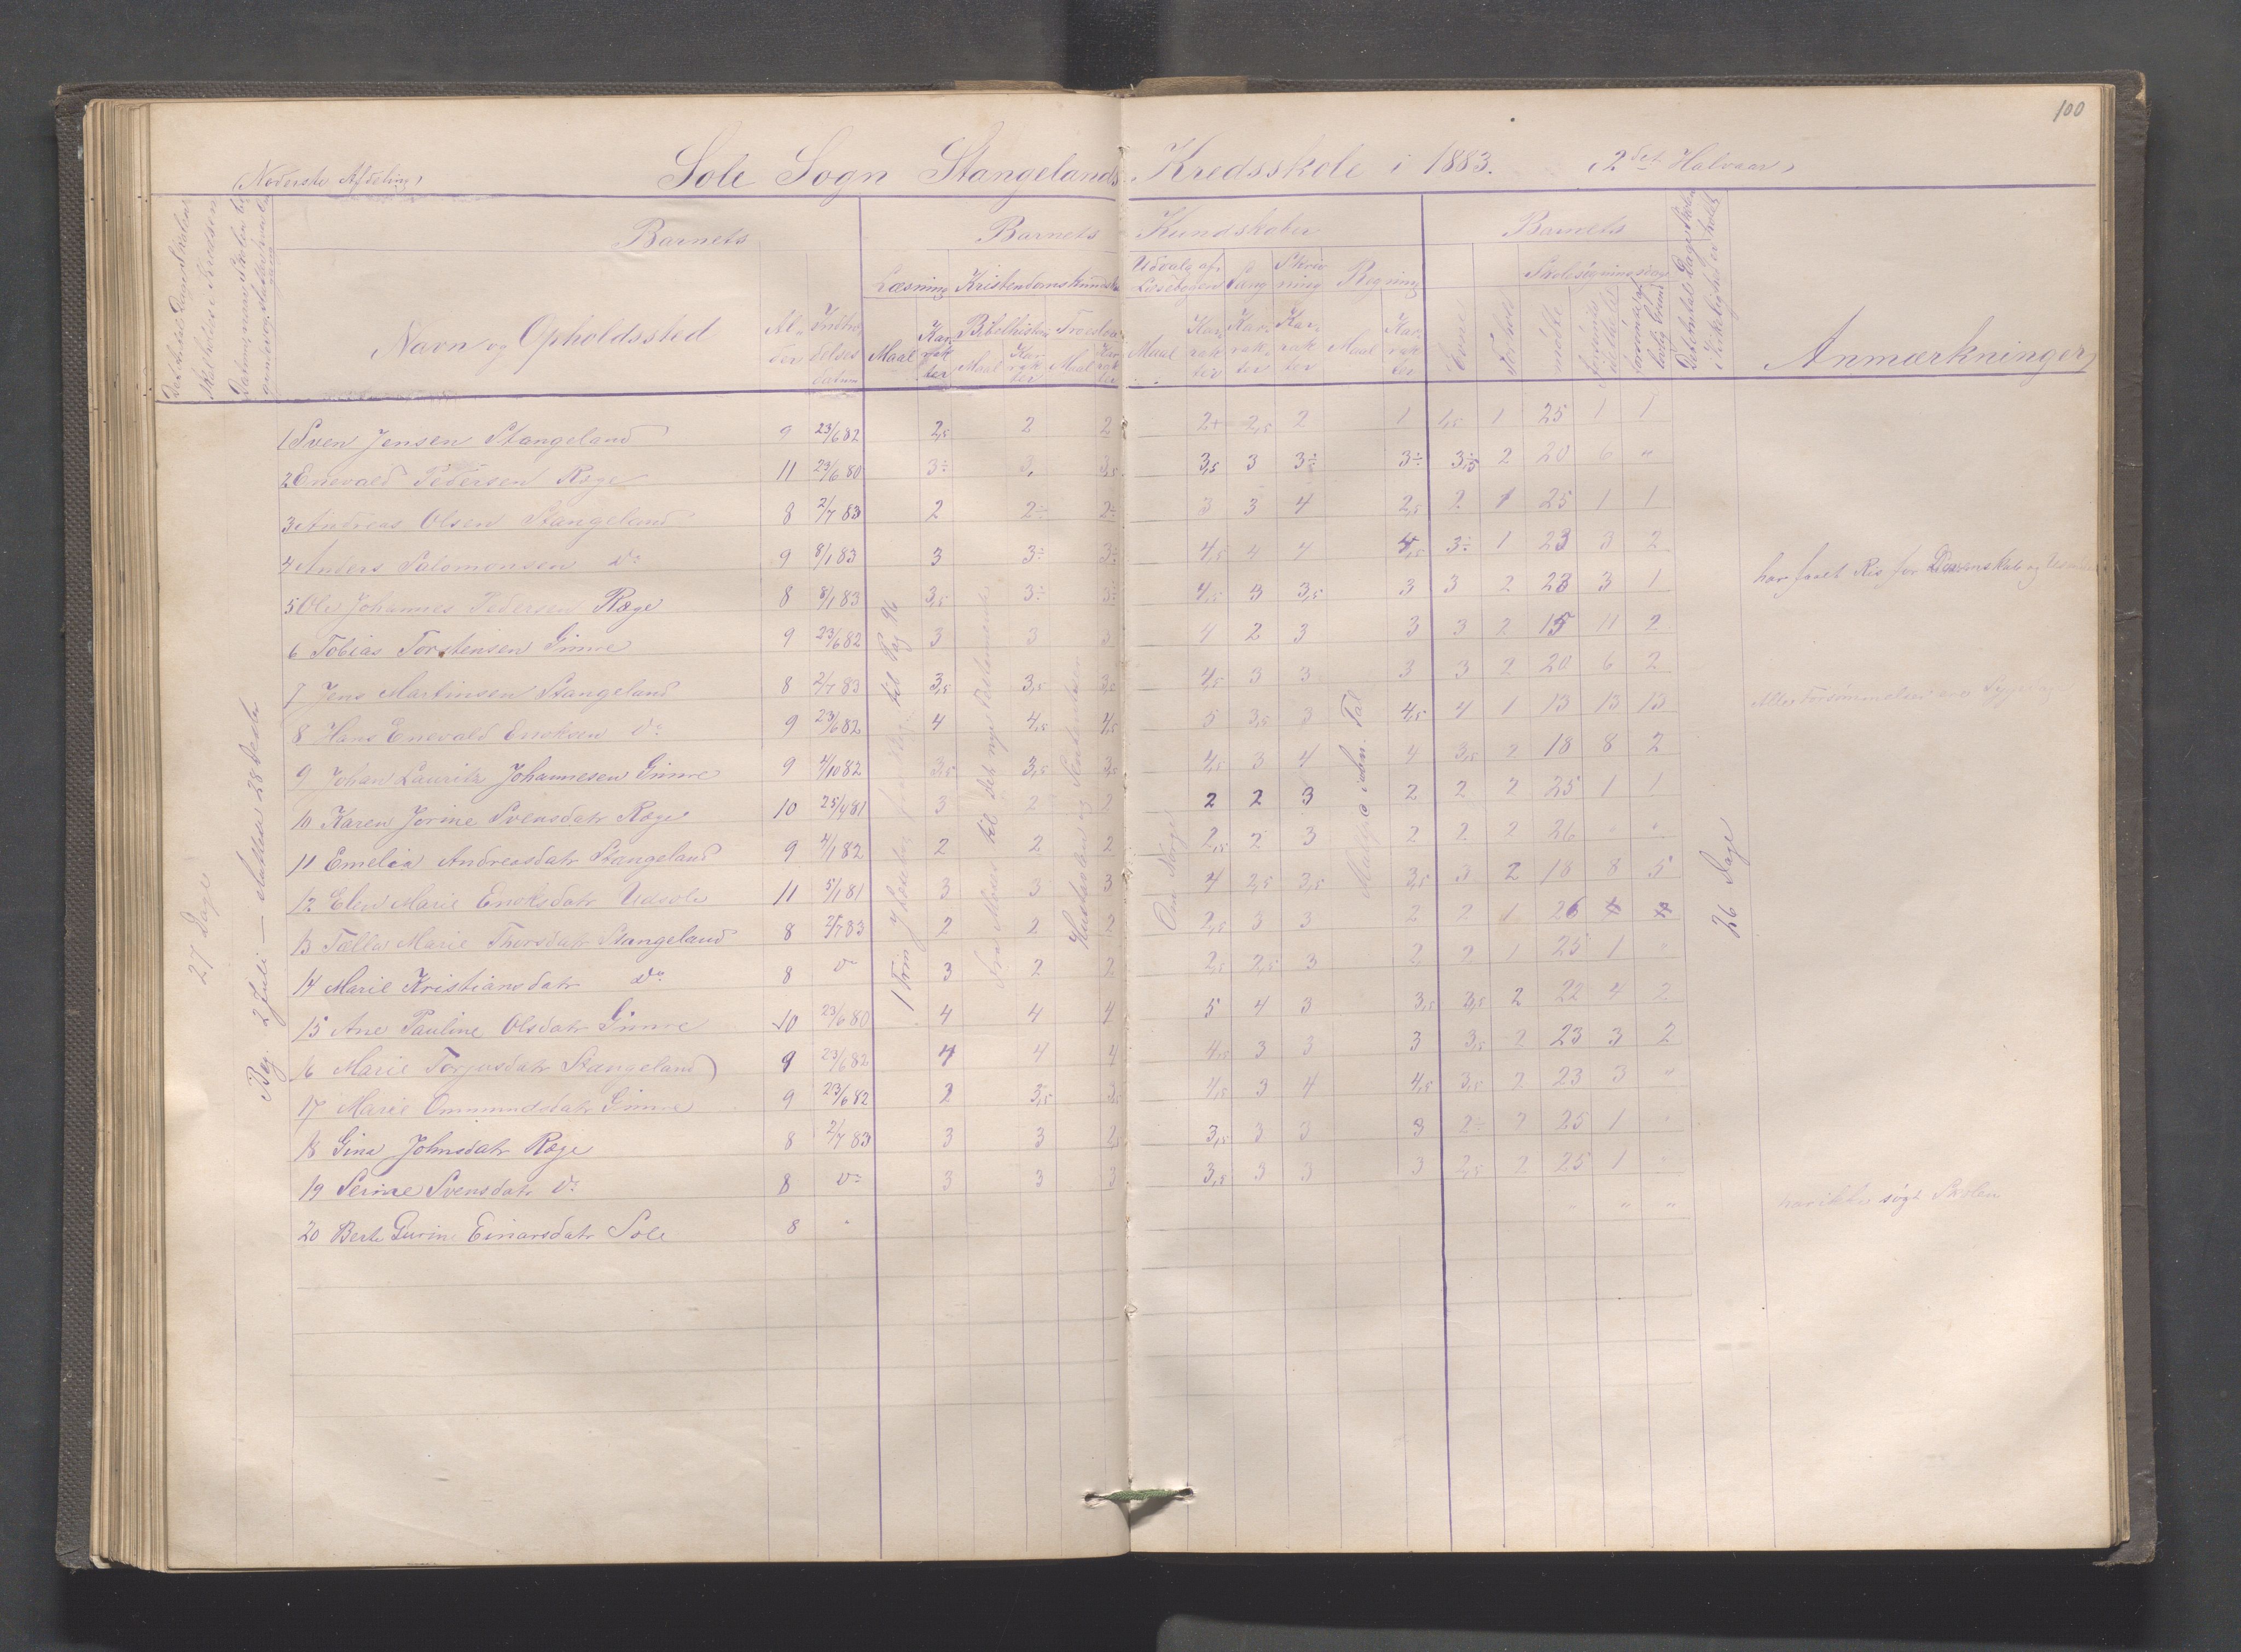 100
(Nederste Afdeling)
Sole Sogn Stangelands Kredsskole i 1883. (2det Halvaar)
Barnets Barnets Kundskaber Barnets
Læsning Kristendomskundsk Udvalg af Læsebogen Sang Skrivning Regning Evne Forhold Skolesøgningsdage
Navn og Opholdssted Alder Indtrædelsesdatum Bibelhistorie Troeslære Anmærkninger
Maal Karakter Maal Karakter Maal Karakter Maal Karakter Karakter Karakter Maal Karakter mødte
27 Dage
Beg. 2 Juli — sluttede 28
1 Sven Jensen Stangeland 9 23/6 82 2,5 2 2 2+ 2,5 2 1 1,5 1 25 1 1
2 Enevald Pedersen Ræge 11 23/6 80 3÷ 3, 3,5 3,5 3 3÷ 3÷ 3,5 2 20 6 "
3 Andreas Olsen Stangeland 8 2/7 83 2 2÷ 2÷ 3 3 4 2,5 2 1 25 1 1
4 Anders Salomonsen Do 9 8/1 83 3 3÷ 3÷ 4,5 4 4 4,5 3÷ 1 23 3 2 har faaet Ris for
5 Ole Johannes Pedersen Ræge 8 8/1 83 3,5 3÷ 3÷ 4,5 3 3,5 3 3 2 23 3 1
6 Tobias Torstensen Gimre 9 23/6 82 3 3 3 4 2 3 3 3 2 15 11 2
7 Jens Martinsen Stangeland 8 2/7 83 3,5 3,5 3,5 4,5 3 3 3 3 2 20 6 2
8 Hans Enevald Enoksen Do 9 23/6 82 4 4,5 4,5 5 3,5 3 4,5 4 1 13 13 13
9 Johan Lauritz Johannesen Gimre 9 4/10 82 3,5 3,5 3,5 4,5 3 4 4 3,5 2 18 8 2
10 Karen Jorine Svensdatr Ræge 10 25/4 81 3 2 2 2 2 3 2 2 2 25 1 1
11 Emelia Andreasdatr Stangeland 9 4/1 82 2 2 2 2,5 2 3 2 2 2 26 " "
12 Elen Marie Enoksdatr Utsole 11 5/1 81 3 3 3 4 2,5 3,5 3,5 3 2 18 8 5
13 Tælla Marie Thorsdatr Stangeland 8 2/7 83 2 2 2 2,5 3 3 2 2 1 26
14 Marie Kristiansdatr Do 8 Do 3 2 2 2,5 2,5 3 2 2 1 25 1 "
15 Ane Pauline Olsdatr Gimre 10 23/6 80 4 4 4 5 4 3 3,5 3,5 2 22 4 2
16 Marie Torjusdatr Stangeland 9 23/6 82 4 4 4 4,5 3 3 3 3,5 2 23 3 2
17 Marie Ommundsdatr Gimre 9 23/6 82 2 3,5 3,5 4,5 3 4 4,5 3,5 2 23 3 "
18 Gina Johnsdatr Ræge 8 2/7 83 3 3 2,5 3,5 3 3 3 2÷ 2 25 1 "
19 Serine Svensdatr Do 8 Do 3 3 3 3,5 3 3 3 2,5 2 25 1 "
20 Berte Gurine Einarsdatr Sole 8 " " " har ikke søgt Skolen
til Pag 96
til det nye Testamente
Hustavlen og
Om Norge
Tal
26 Dage